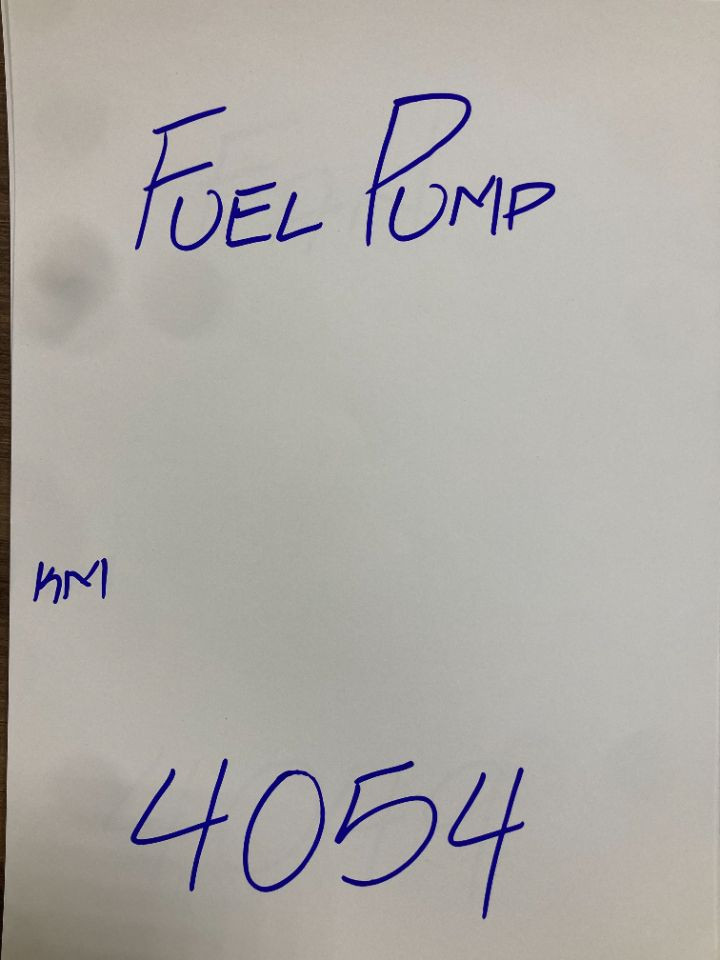 FUEL PUMP
KM
4054